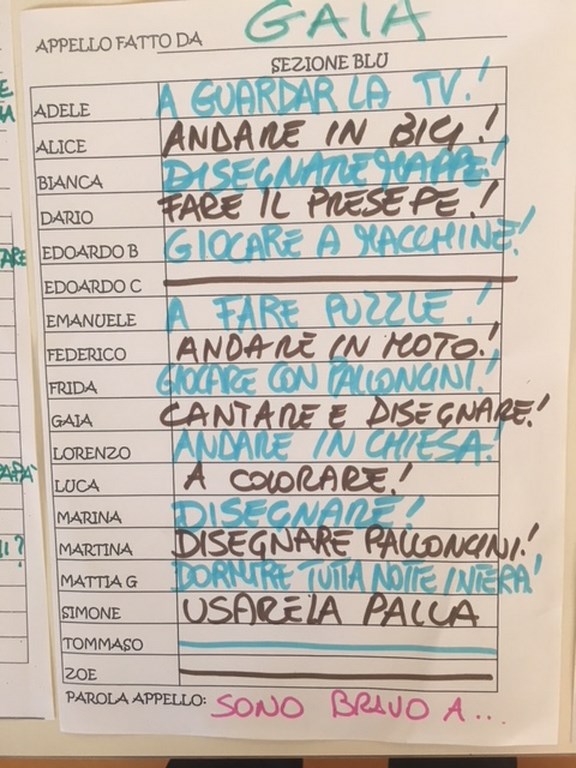 APPELLO FATTO DA GAIA
SEZIONE BLU
ADELE A GUARDAR LA TV!
ALICE ANDARE IN BICI!
BIANCA DISEGNARE MAPPE!
DARIO FARE IL PRESEPE!
EDOARDO B GIOCARE A MACCHINE!
EDOARDO C
EMANUELE A FARE PUZZLE!
FEDERICO ANDARE IN MOTO!
FRIDA GIOCARE CON PALLONCINI!
GAIA CANTARE E DISEGNARE!
LORENZO ANDARE IN CHIESA!
LUCA A COLORARE!
MARINA DISEGNARE!
MARTINA DISEGNARE PALLONCINI!
MATTIA G DORMIRE TUTTA NOTTE INTERA!
SIMONE USARE LA PALLA
TOMMASO
ZOE
PAROLA APPELLO: SONO BRAVO A...
PAPÀ